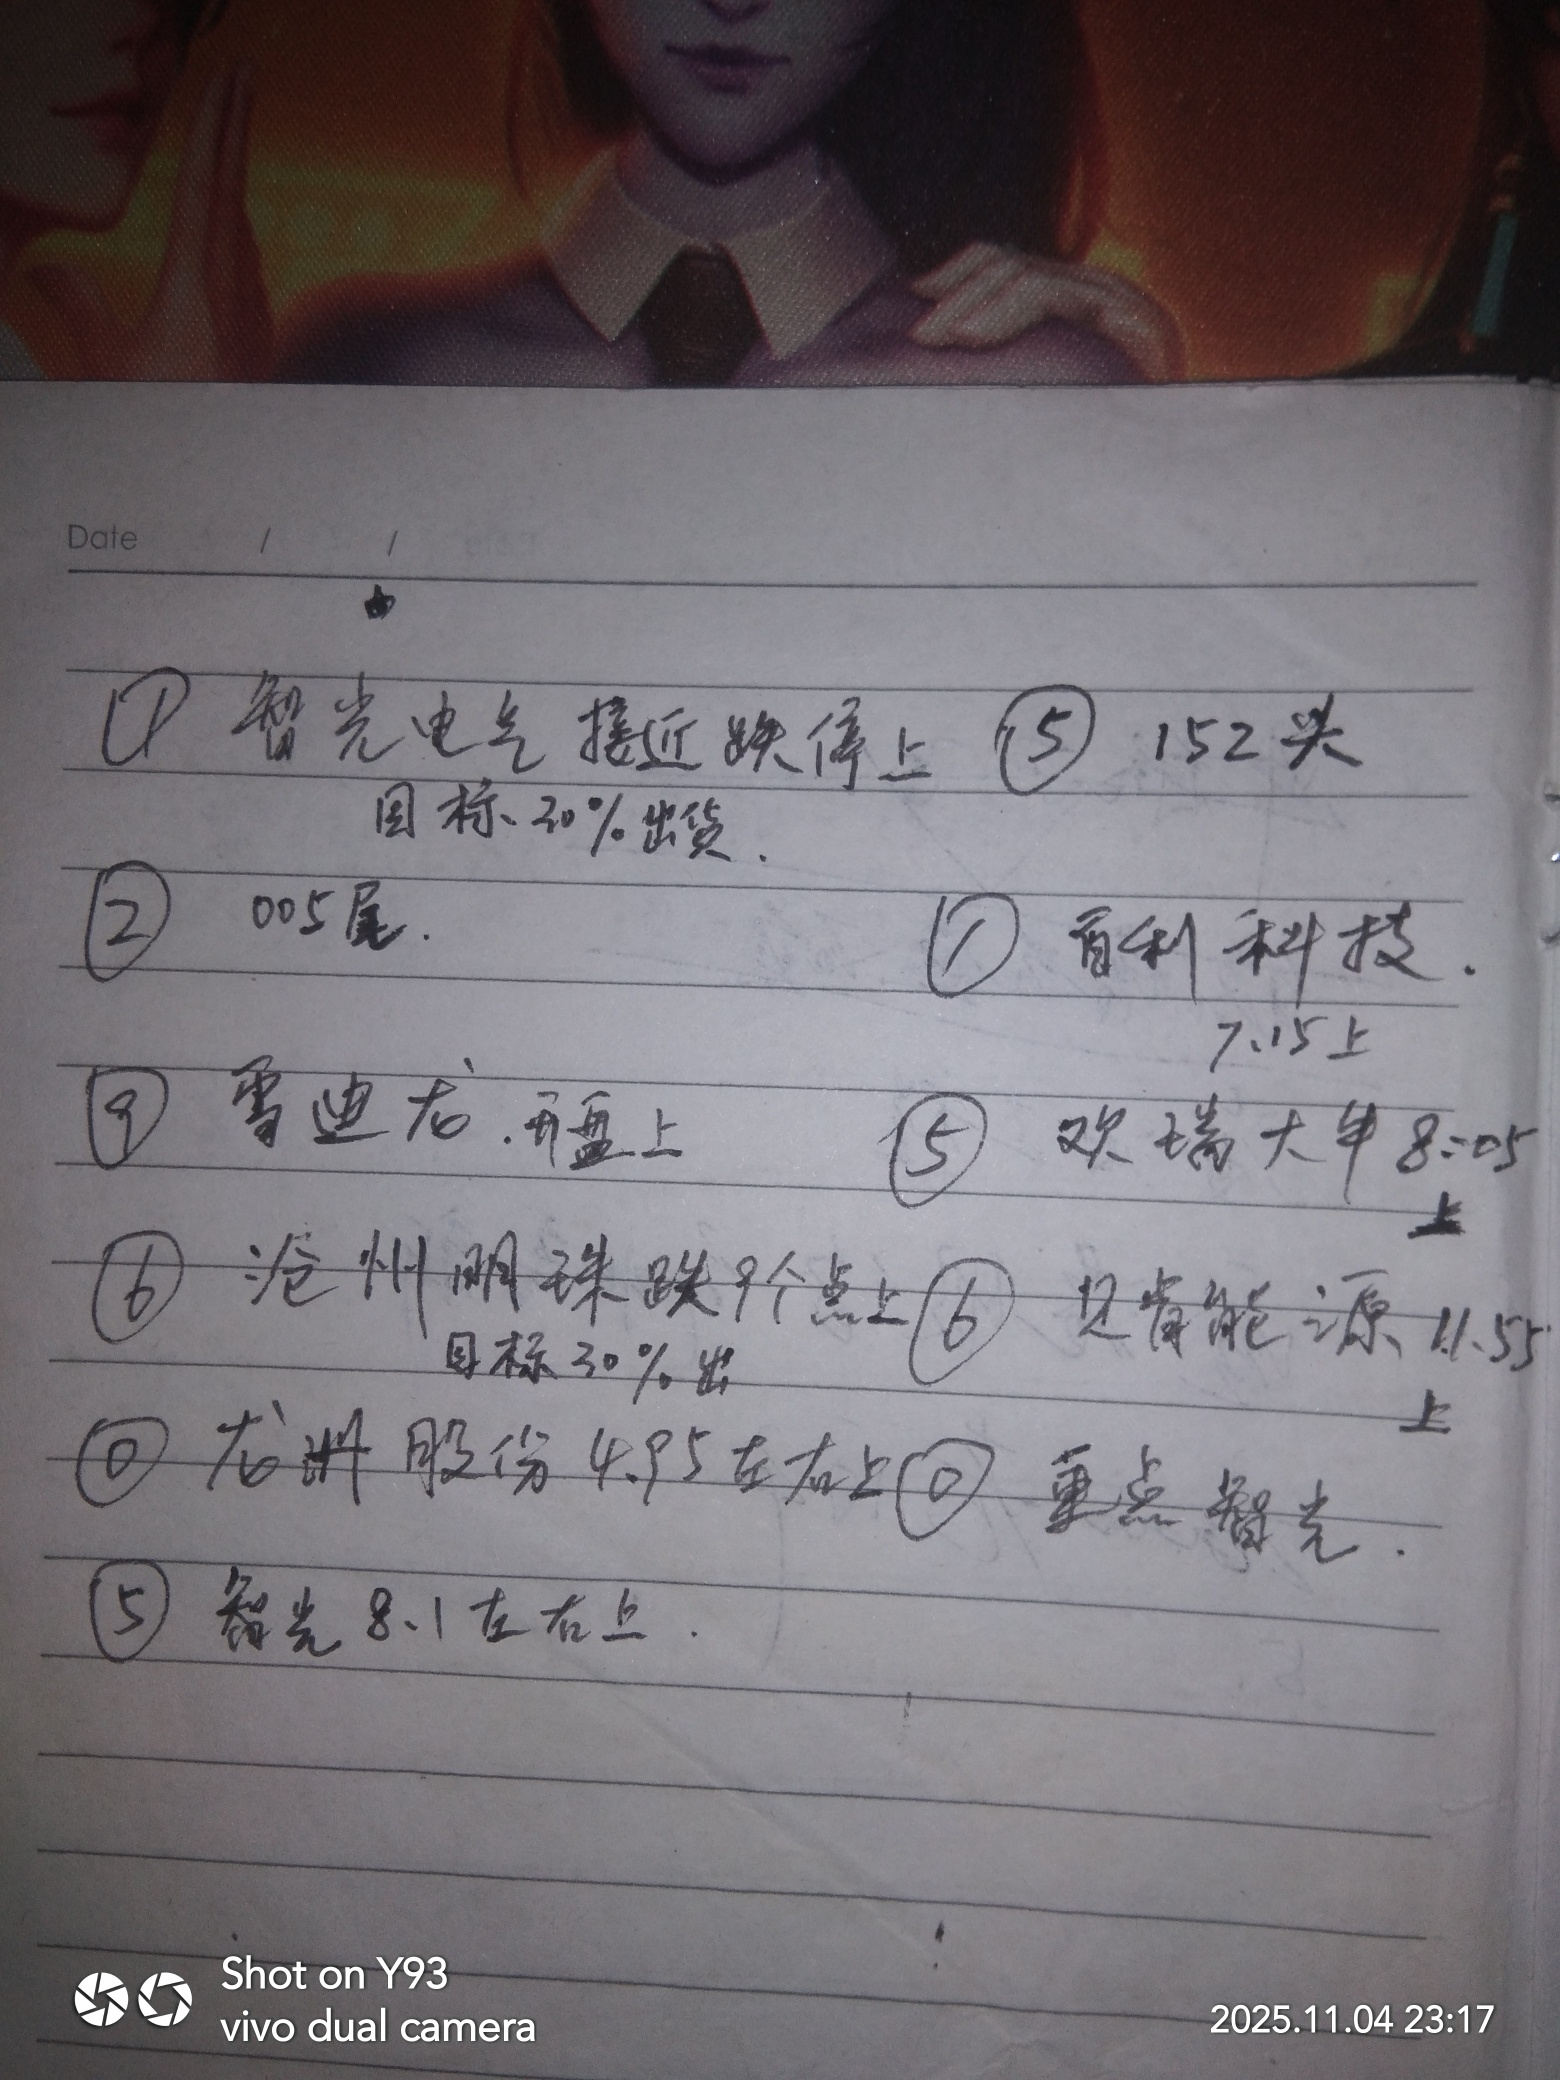 Date / /
① 智光电气接近跌停上
目标、30%出货.
② 005尾.
⑨ 雪迪龙.开盘上
⑥ 沧州明珠跌9个点上
目标30%出
⓪ 龙洲股份 4.95左右上
⑤ 智光 8.1左右上.
⑤ 152头
① 百利科技.
7.15上
⑤ 欢瑞大年 8:05
上
⑥ 能源 11.55
上
⓪ 重点智光.
Shot on Y93
vivo dual camera
2025.11.04 23:17